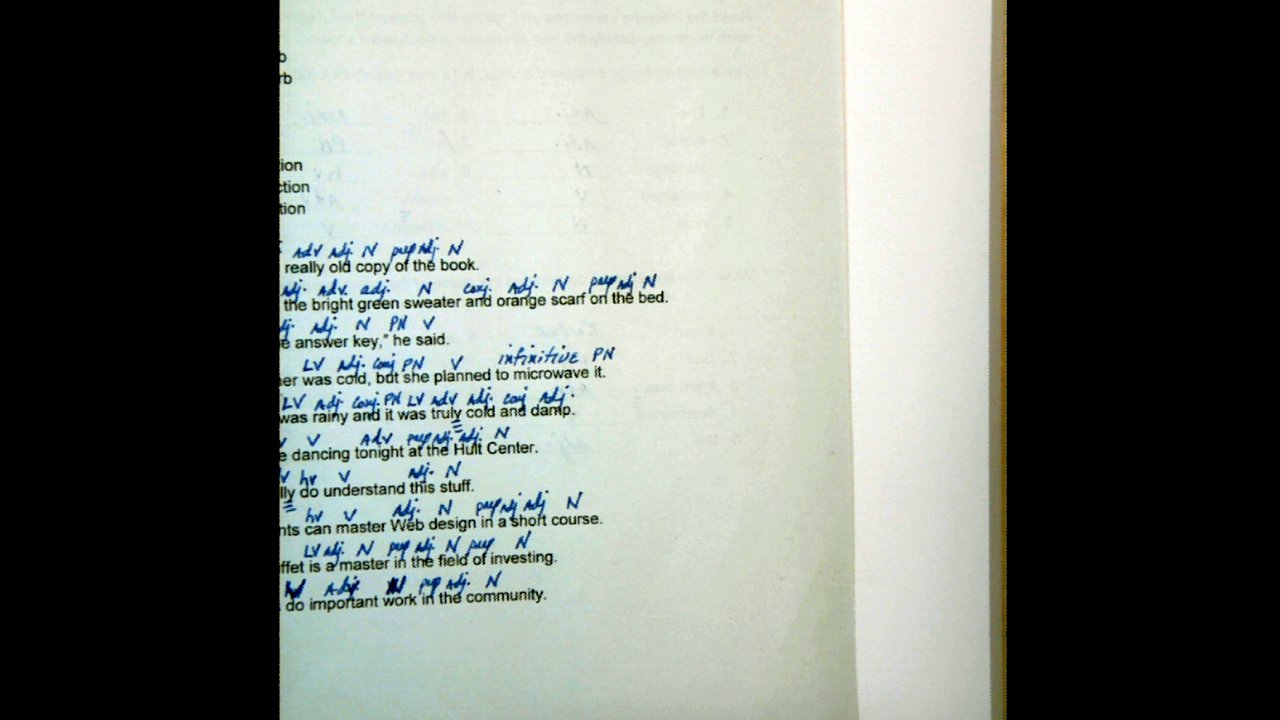 rb
ion
ction
tion
Adv Adj. N prep Adj. N
really old copy of the book.
Adj. Adv. adj. N conj. Adj. N prep Adj N
the bright green sweater and orange scarf on the bed.
Adj. N PN V
e answer key," he said.
LV Adj. Conj PN V infinitive PN
er was cold, but she planned to microwave it.
LV Adj. Conj. PN LV Adv Adj. conj Adj.
was rainy and it was truly cold and damp.
V Adv prep Adj. Adj. N
e dancing tonight at the Hult Center.
hv V Adj. N
lly do understand this stuff.
hv V Adj. N prep Adj Adj N
nts can master Web design in a short course.
LV adj. N prep adj. N prep N
ffet is a master in the field of investing.
V Adj. N prep Adj. N
do important work in the community.